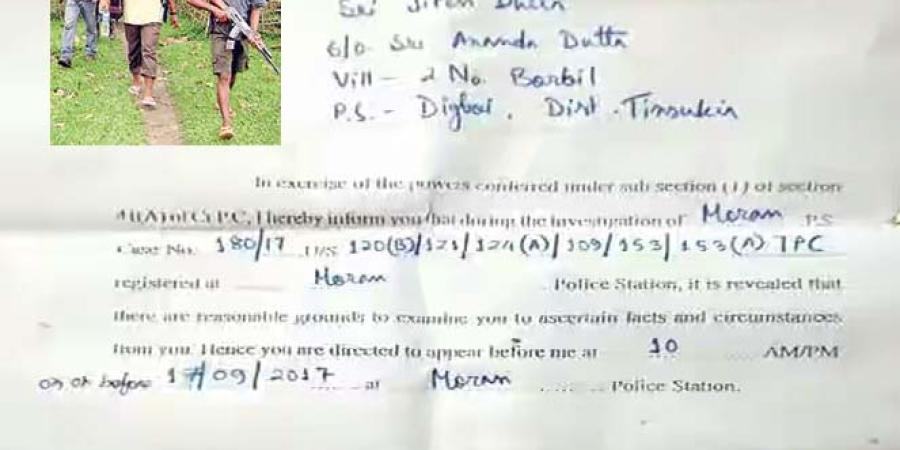 Sri Jiten Dutta
S/o. Sri Ananda Dutta
Vill – 2 No. Borbil
P.S. - Digboi, Dist. Tinsukia
In exercise of the powers conferred under sub section (1) of section
41(A) of Cr.P.C, I hereby inform you that during the investigation of Moran P.S
Case No. 180/17 U/S 120(B)/121/124(A)/109/153/153(A) IPC
registered at Moran Police Station, it is revealed that
there are reasonable grounds to examine you to ascertain facts and circumstances
from you. Hence you are directed to appear before me at 10 AM/PM
on or before 17/09/2017 at Moran Police Station.